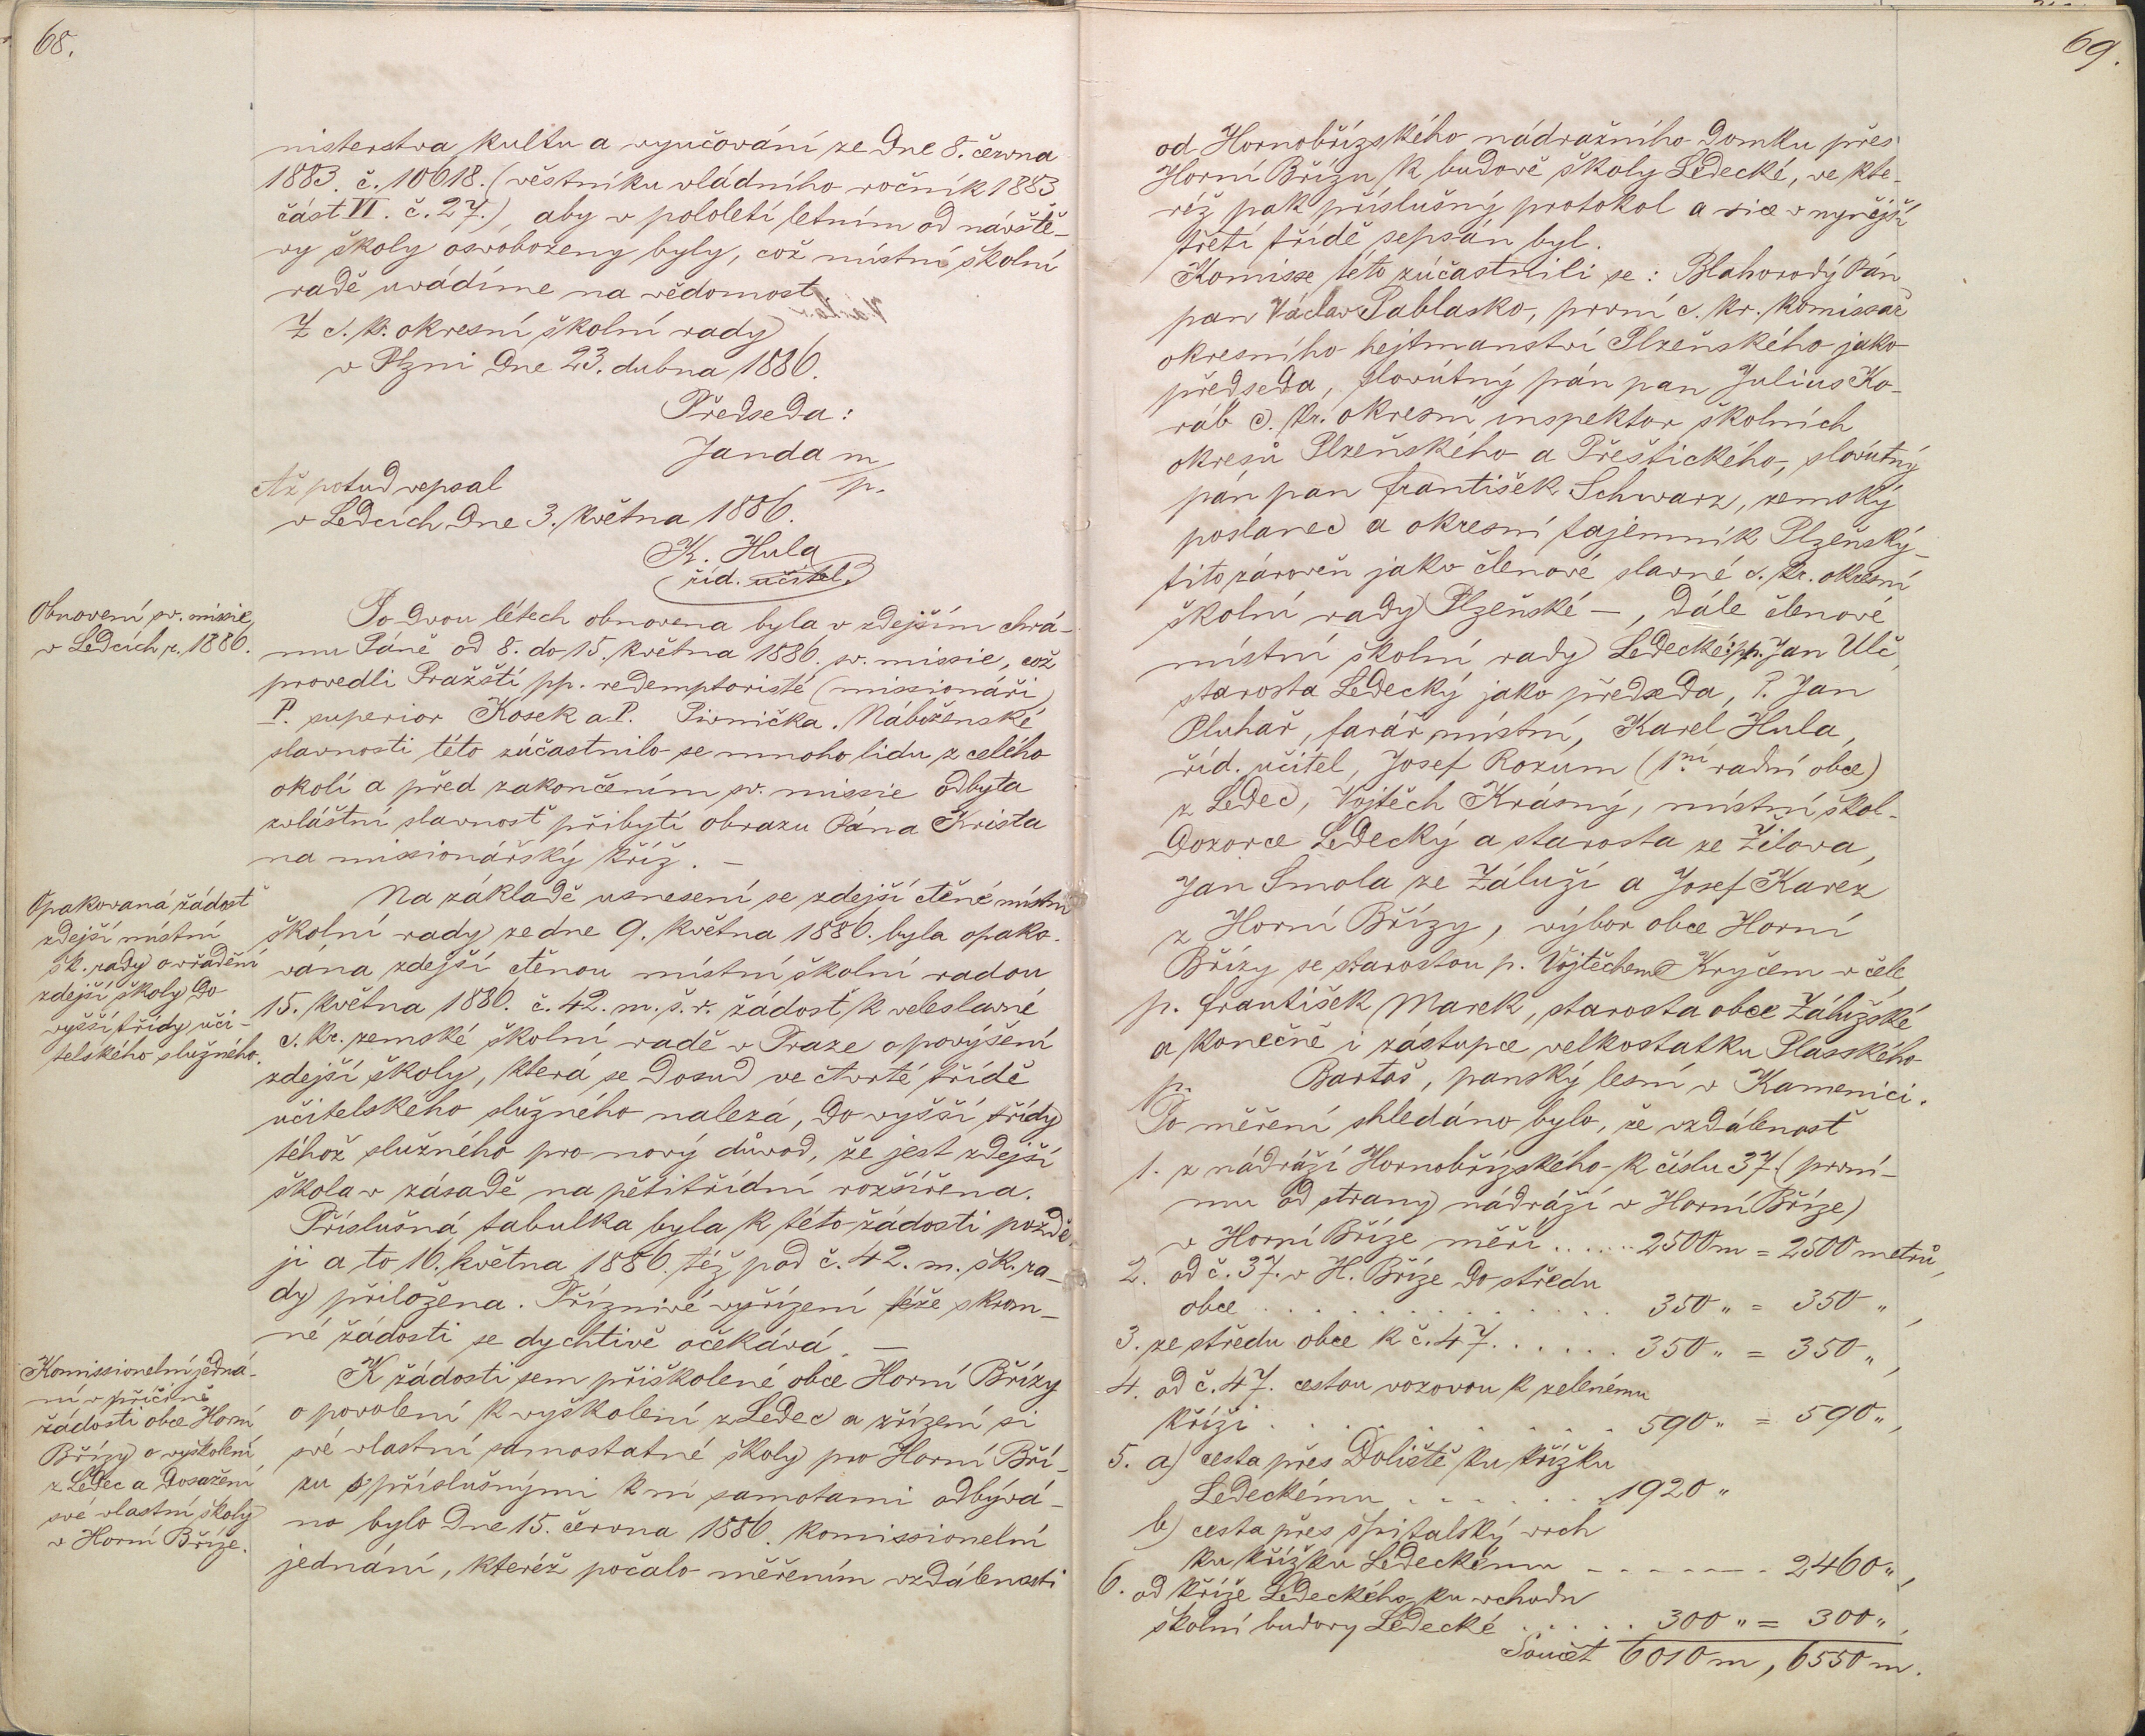 68.
nisterstva kultu a vyučování ze dne 8. čevna
1883. č. 10618. (věstníku vládního ročník 1883
část VI. č. 27.), aby v pololetí letním od návště-
vy školy osvobozeny byly, což místní školní
radě uvádíme na vědomost.
Z c. k. okresní školní rady
v Plzni dne 23. dubna 1886.
Předseda:
Janda m
p.
Až potud vepsal
v Ledcích dne 3. května 1886.
K. Hula
říd. učitel.
Obnovení sv. missie
v Ledcích r. 1886.
Po dvou létech obnovena byla v zdejším chrá-
mu Páně od 8. do 15. května 1886. sv. missie, což
provedli Pražští pp. redemptoristé (missionáři)
P. superior Kosek a P. Pivnička. Náboženské
slavnosti této zúčastnilo se mnoho lidu z celého
okolí a před zakončením sv. missie odbyta
zvláštní slavnosť přibytí obrazu Pána Krista
na missionářský kříž. —
Opakovaná žádosť
zdejší místní
šk. rady o vřadění
zdejší školy do
vyšší třídy uči-
telského služného.
Na základě usnesení se zdejší ctěné místní
školní rady ze dne 9. května 1886. byla opako-
vána zdejší ctěnou místní školní radou
15. května 1886. č. 42. m. š. r. žádosť k veleslavné
c. kr. zemské školní radě v Praze o povýšení
zdejší školy, která se dosud ve čtvrté třídě
učitelského služného nalezá, do vyšší třídy
téhož služného pro nový důvod, že jest zdejší
škola v zásadě na pětitřídní rozšířena.
Příslušná tabulka byla k této žádosti pozdě-
ji a to 16. května 1886. též pod č. 42. m. šk. ra-
dy přiložena. Příznivé vyřízení téže skrom-
né žádosti se dychtivě očekává. —
Komissionelní jedná-
ní v příčině
žádosti obce Horní
Břízy o vyškolení
z Ledec a dosažení
své vlastní školy
v Horní Bříze.
K žádosti sem přiškolené obce Horní Břízy
o povolení k vyškolení z Ledec a zřízení si
své vlastní samostatné školy pro Horní Bří-
zu s příslušnými k ní samotami odbývá-
no bylo dne 15. června 1886. komissionelní
jednání, kteréž počalo měřením vzdálenosti
69.
od Hornobřízského nádražního domku přes
Horní Břízu k budově školy Ledecké, ve kte-
réž pak příslušný protokol a sice v nynější
třetí třídě sepsán byl.
Komisse této zúčastnili se: Blahorodý Pán
pan Václav Pablasko, první c. kr. komissař
okresního hejtmanství Plzeňského jako
předseda, slovútný pán pan Julius Ko-
ráb c. kr. okresní inspektor školních
okresů Plzeňského a Přeštického, slovútný
pán pan František Schwarz, zemský
poslanec a okresní tajemník Plzeňský-
tito zároveň jako členové slavné c. kr. okresní
školní rady Plzeňské —, dále členové
místní školní rady Ledecké: pp. Jan Ulč,
starosta Ledecký jako předseda, P. Jan
Pluhař, farář místní, Karel Hula,
říd. učitel, Josef Rozum (1ní radní obce)
z Ledec, Vojtěch Krásný, místní škol-
dozorce Ledecký a starosta ze Žilova,
Jan Smola ze Záluží a Josef Karez
z Horní Břízy, výbor obce Horní
Břízy se starostou p. Vojtěchem Kryčem v čele,
p. František Marek, starosta obce Zálužské
a konečně i zástupce velkostatku Plasského
p. Bartoš, panský lesní v Kamenici.
Po měření shledáno bylo, že vzdálenosť
1. z nádráží Hornobřízského k číslu 37 (první-
mu od strany nádráží v Horní Bříze)
v Horní Bříze měří ...... 2500 m = 2500 metrů,
2. od č. 37. v H. Bříze do středu
obce . . . . . . . . . . . . 350 „ = 350 „,
3. ze středu obce k č. 47. . . . . . . 350 „ = 350 „,
4. od č. 47. cestou vozovou k zelenému
kříži . . . . . . . . . . . . 590 „ = 590 „,
5. a) cesta přes Doliště ku křížku
Ledeckému . . . . . . . 1920 „
b) cesta přes špitalský vrch
ku křížku Ledeckému - - - - - - - 2460 „,
6. od kříže Ledeckého ku vchodu
školní budovy Ledecké . . . . . 300 „ = 300 „,
Součet 6010 m, 6550 m.